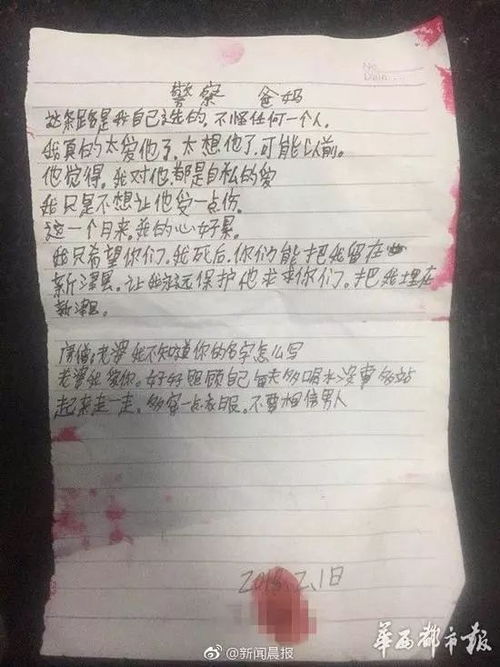 No.
Date.
警察 爸妈
这条路是我自己选的,不怪任何一个人.
我真的太爱他了,太想他了,可能以前。
他觉得,我对他,都是自私的爱
我只是不想让他受一点伤.
这一个月来,我的心好累.
我只希望你们,我死后,你们能把我留在
新津县,让我永远保护他求求你们,把我埋在
新津县。
老婆我不知道你的名字怎么写
老婆我爱你。好好照顾自己每天多喝水没事多站
起来走一走,多穿一点衣服。不要相信男人
2018.2.1日
@新闻晨报
华西都市报